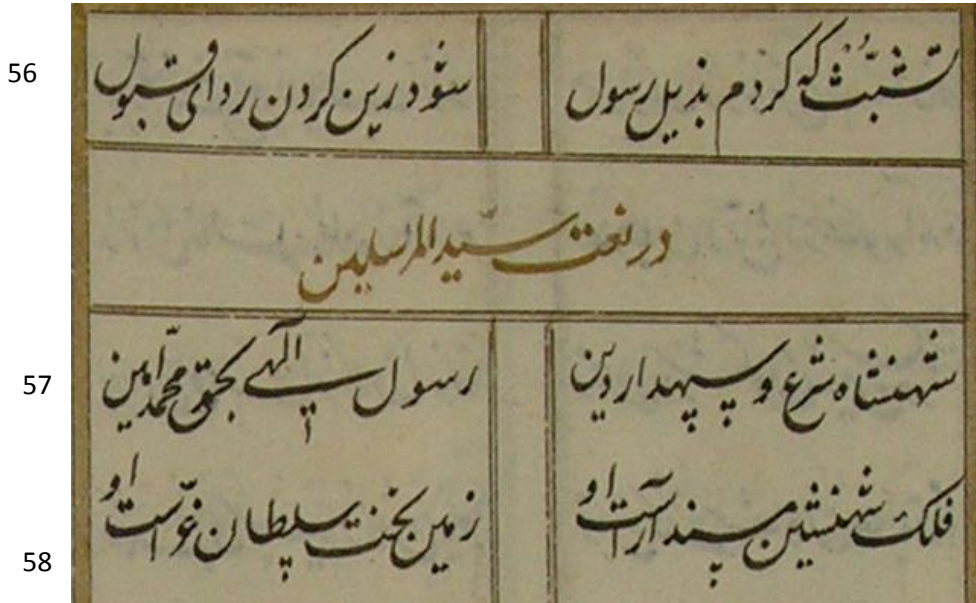 56 تشبّث که کردم بذیل رسول شود زین کردن ردای قبول
در نعت سیّد المرسلین
57 شهنشاه شرع و سپهدار دین رسول الهی بحق محمّد امین
58 فلک شهنشین مسند آراست او زمین تخت سلطان غرّاست او